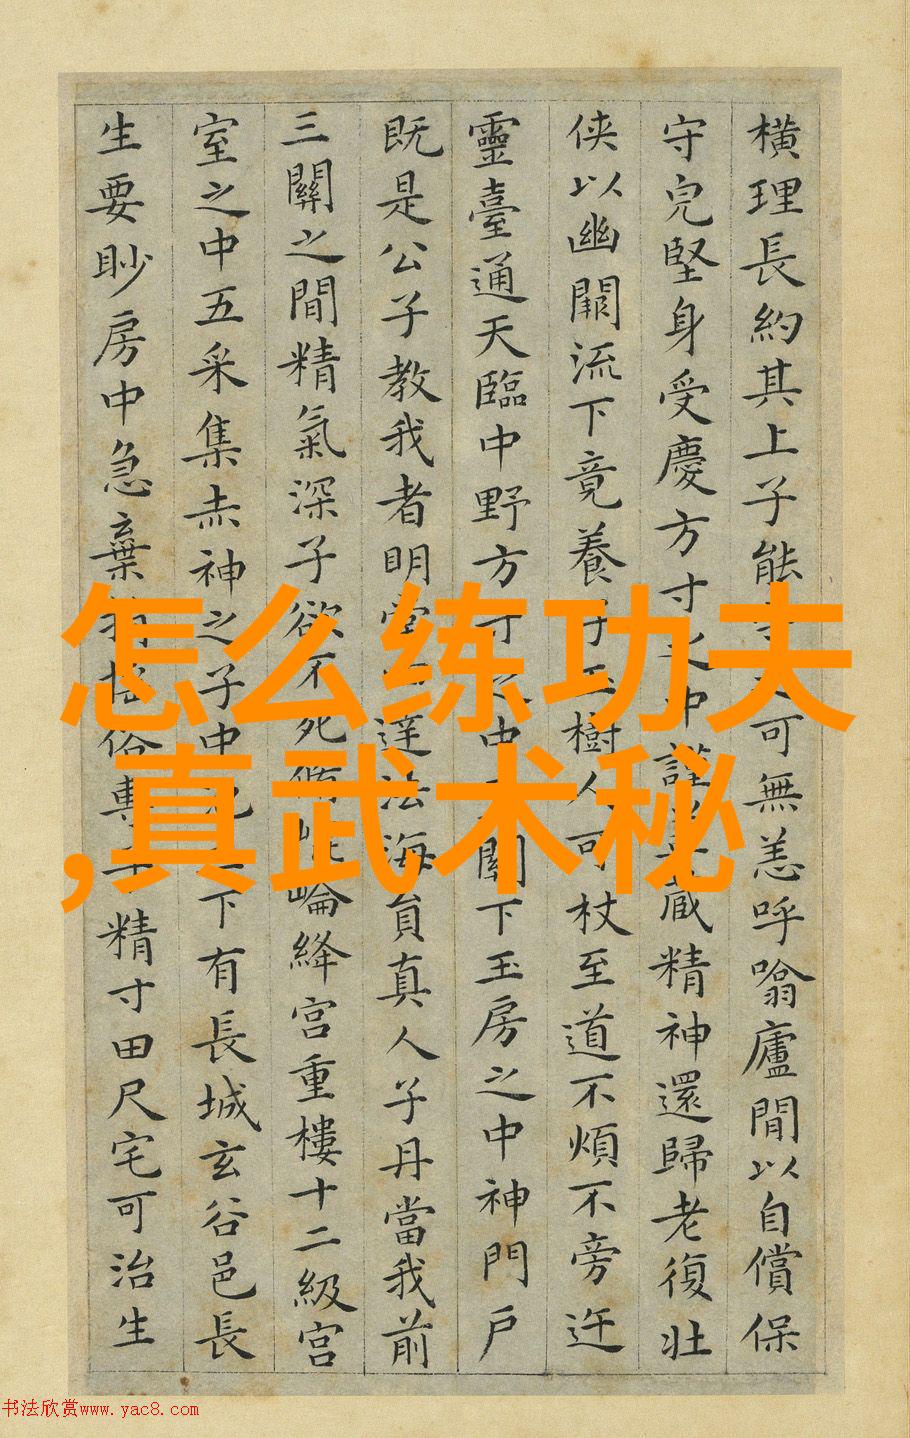 橫理長約其上子能可無恙呼噏廬間以自償保
守皃堅身受慶方寸之中謹藏精神還歸老復壯
俠以幽闕流下竟養子玉樹人可杖至道不煩不旁迕
靈臺通天臨中野方寸之中關下玉房之中神門戶
既是公子教我者明堂達法海員真人子丹當我前
三關之間精氣深子欲不死脩崘絳宮重樓十二級宮
室之中五采集赤神之子中下有長城玄谷邑長
生要眇房中急棄俗專子精寸田尺宅可治生
怎么练功夫
,真武术秘
书法欣赏www.yac8.com